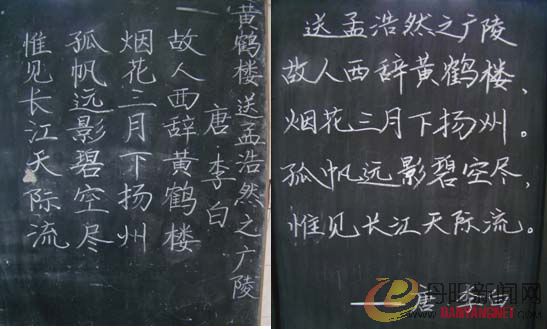 黄鹤楼送孟浩然之广陵
唐·李白
故人西辞黄鹤楼
烟花三月下扬州
孤帆远影碧空尽
惟见长江天际流
送孟浩然之广陵
故人西辞黄鹤楼，
烟花三月下扬州。
孤帆远影碧空尽，
惟见长江天际流。
——唐 李白
丹阳新闻网
DANYANGNET